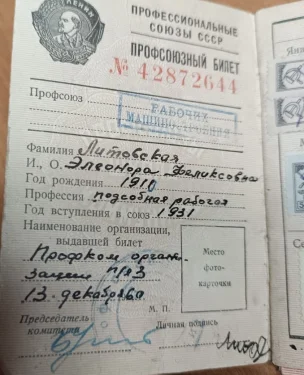 ЛЕНИН
ПРОФЕССИОНАЛЬНЫЕ
СОЮЗЫ СССР
ПРОФСОЮЗНЫЙ БИЛЕТ
№ 42872644
Профсоюз
РАБОЧИХ
МАШИНОСТРОЕНИЯ
Фамилия Литовская
И., О. Элеонора Феликсовна
Год рождения 1910
Профессия подсобная рабочая
Год вступления в союз 1931
Наименование организации,
выдавшей билет
Профком органи-
зации п/я 3
13 декабря
Место
фото-
карточки
М. П.
Председатель
комитета
Личная подпись
Янв